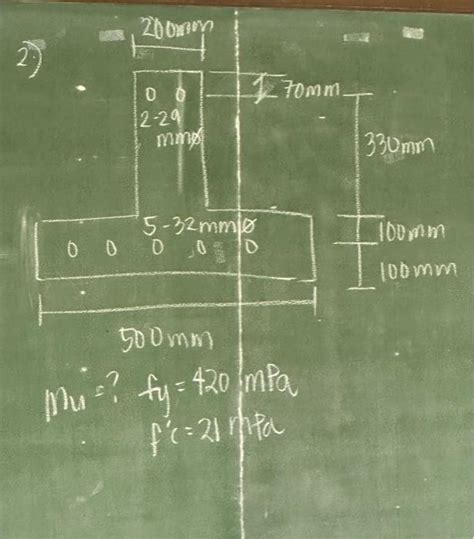 2.)
200mm
70mm
2-29
mmø
330mm
5-32mmø
100mm
100mm
500mm
Mu=? fy=420 mPa
f'c=21 mPa